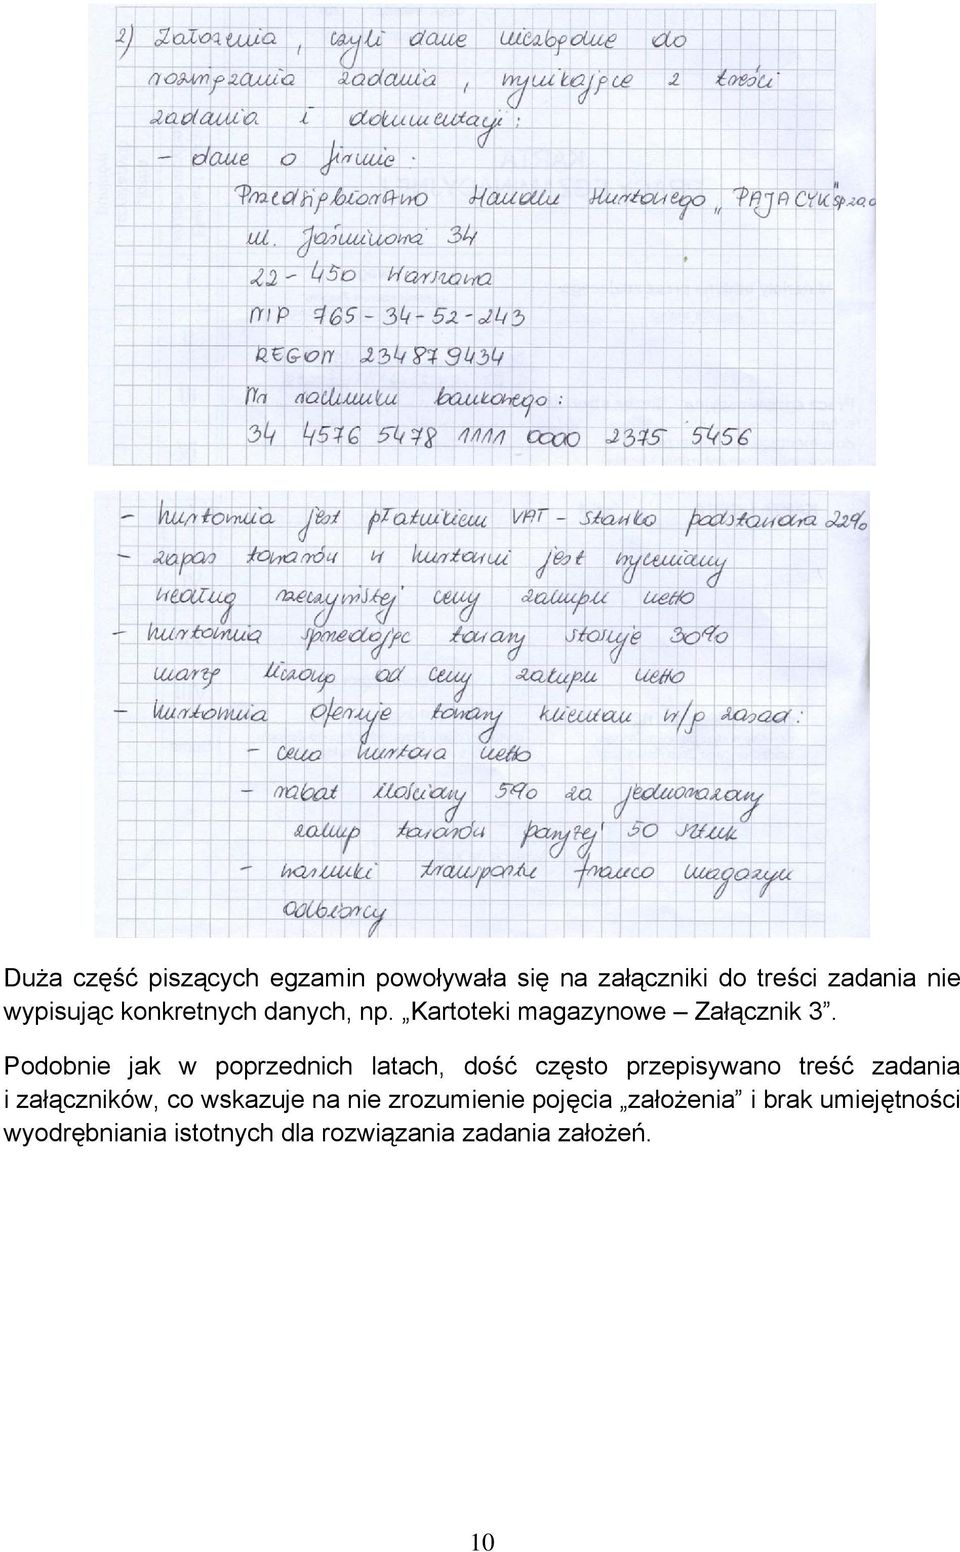 2) Założenia, czyli dane niezbędne do
rozwiązania zadania, wynikające z treści
zadania i dokumentacji:
- dane o firmie:
Przedsiębiorstwo Handlu Hurtowego „PAJACYK" sp. z o.o
ul. Jaśminowa 34
22-450 Warszawa
NIP 765-34-52-243
REGON 234879434
Nr rachunku bankowego:
34 4576 5478 1111 0000 2375 5456
- hurtownia jest płatnikiem VAT - stawka podstawowa 22%
- zapas towarów w hurtowni jest wyceniany
według rzeczywistej ceny zakupu netto
- hurtownia sprzedając towary stosuje 30%
marżę liczoną od ceny zakupu netto
- hurtownia oferuje towary klientom w/g zasad:
- cena hurtowa netto
- rabat ilościowy 5% za jednorazowy
zakup towarów powyżej 50 sztuk
- warunki transportu franco magazyn
odbiorcy
Duża część piszących egzamin powoływała się na załączniki do treści zadania nie
wypisując konkretnych danych, np. „Kartoteki magazynowe – Załącznik 3".
Podobnie jak w poprzednich latach, dość często przepisywano treść zadania
i załączników, co wskazuje na nie zrozumienie pojęcia „założenia" i brak umiejętności
wyodrębniania istotnych dla rozwiązania zadania założeń.
10